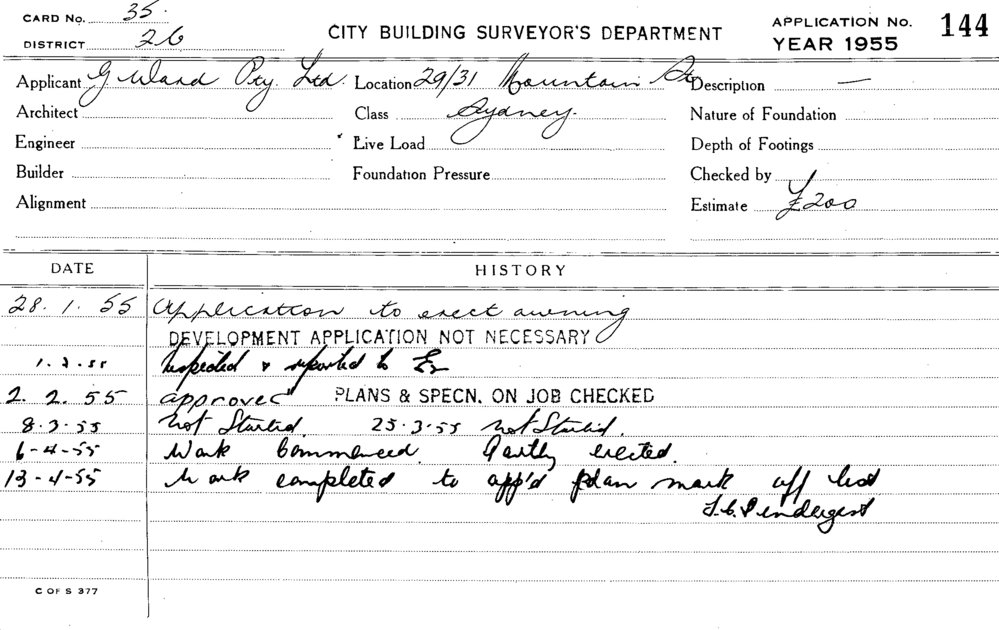 CARD No. 35.
DISTRICT 26
CITY BUILDING SURVEYOR'S DEPARTMENT
APPLICATION No. 144
YEAR 1955
Applicant G Ward Pty. Ltd. Location 29/31 Mountain St Description —
Architect Class Sydney. Nature of Foundation
Engineer Live Load Depth of Footings
Builder Foundation Pressure Checked by
Alignment Estimate £200
DATE HISTORY
28. 1. 55 Application to erect awning
DEVELOPMENT APPLICATION NOT NECESSARY
1. 2. 55 Inspected & reported to
2. 2. 55 approved PLANS & SPECN. ON JOB CHECKED
8. 3. 55 Not Started. 25. 3. 55 not Started.
6-4-55 Work Commenced. Partly erected.
13-4-55 Work completed to app'd plan mark off list
J.C. Pendergast
C OF S 377